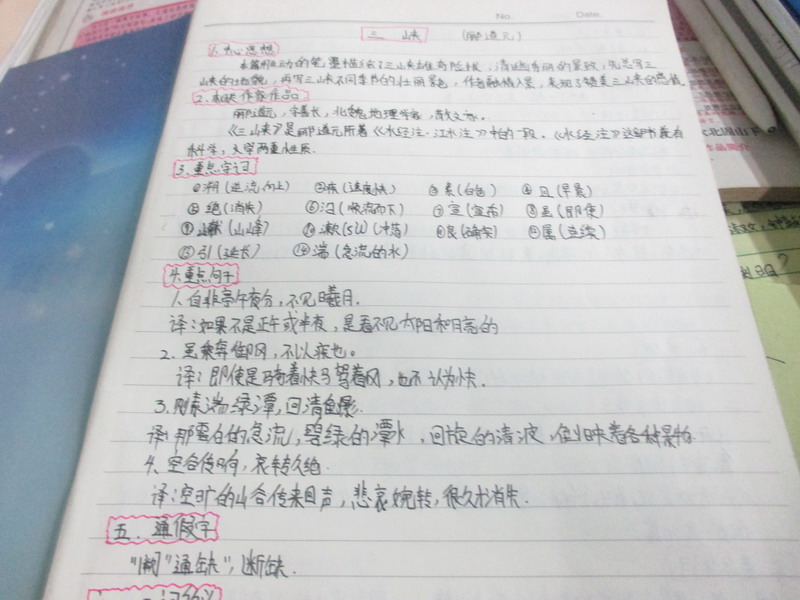 No. Date.
三峡 (郦道元)
1.中心思想
先总写三
峡的地貌，再写三峡不同季节的壮丽景色，作者融情入景，表现了赞美三峡的感情
2.相关作家作品
郦道元，字善长，北魏地理学家，散文家.
《三峡》是郦道元所著《水经注·江水注》中的一段.《水经注》这部书兼有
科学，文学两重性质.
3.重点字词
①溯(逆流而上) ②疾(速度快) ③素(白色) ④旦(早晨)
⑤绝(消失) ⑥沿(顺流而下) ⑦宣(宣布) ⑧虽(即使)
⑨巘(山峰) ⑩漱(sù)(冲荡) ⑪良(确实) ⑫属(连续)
⑬引(延长) ⑭湍(急流的水)
4.重点句子
1.自非亭午夜分，不见曦月.
译:如果不是正午或半夜，是看不见太阳和月亮的
2.虽乘奔御风，不以疾也。
译:即使是骑着快马驾着风，也不认为快.
3.则素湍绿潭，回清倒影.
译:那雪白的急流，碧绿的潭水，回旋的清波，倒映着各种景物
4.空谷传响，哀转久绝.
译:空旷的山谷传来回声，悲哀婉转，很久才消失.
五.通假字
"阙"通"缺"，断缺.